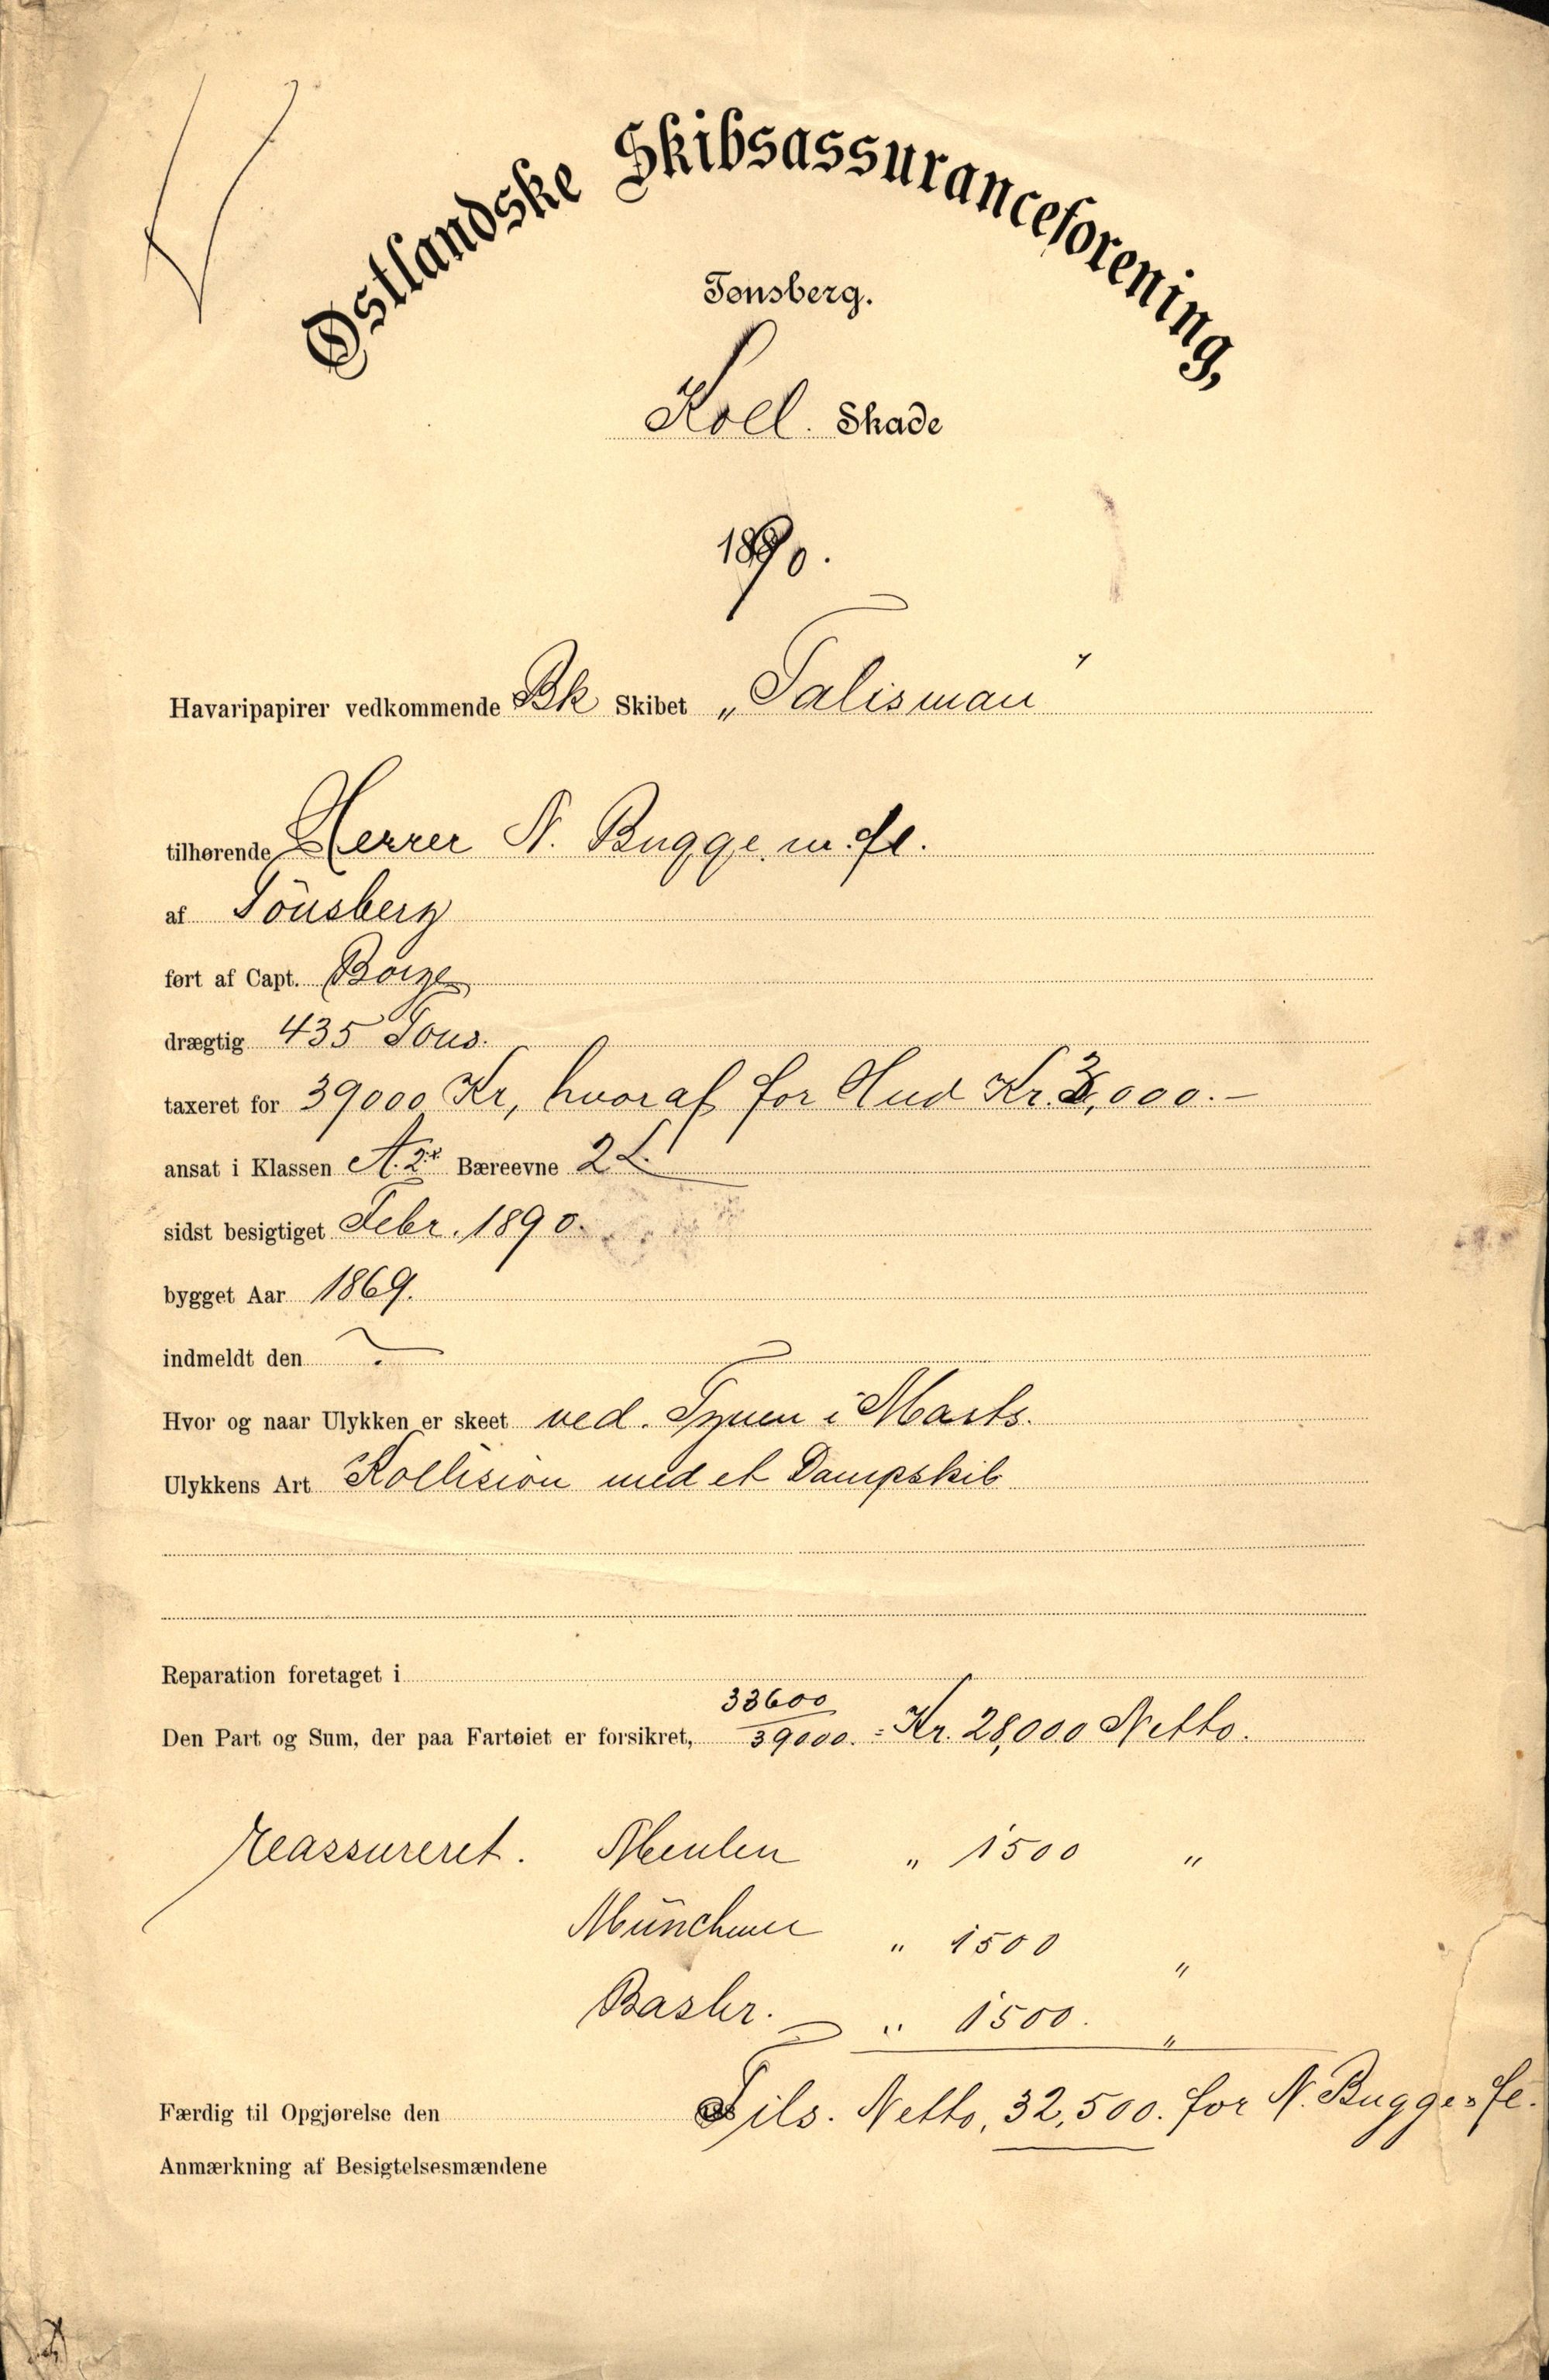 Østlandske Skibsassuranceforening,
Tønsberg.
Koll. Skade
1890.
Havaripapirer vedkommende Bk Skibet „Talisman"
tilhørende Herrer N. Bugge m. fl.
af Tönsberg
ført af Capt.
drægtig 435 Tons.
taxeret for 39000 Kr, hvoraf for Hud Kr. 3,000.-
ansat i Klassen A.2* Bæreevne 2 L.
sidst besigtiget Febr. 1890.
bygget Aar 1869.
indmeldt den
Hvor og naar Ulykken er skeet ved. Tynen i Marts.
Ulykkens Art Kollision med et Dampskib
Reparation foretaget i
Den Part og Sum, der paa Fartøiet er forsikret, 33600/39000. = Kr. 28,000 Netto.
reassureret. " 1500 "
Münchner " 1500 "
Basler. " 1500. "
Færdig til Opgjørelse den 188 Tils. Netto, 32,500. for N. Bugge m. fl.
Anmærkning af Besigtelsesmændene